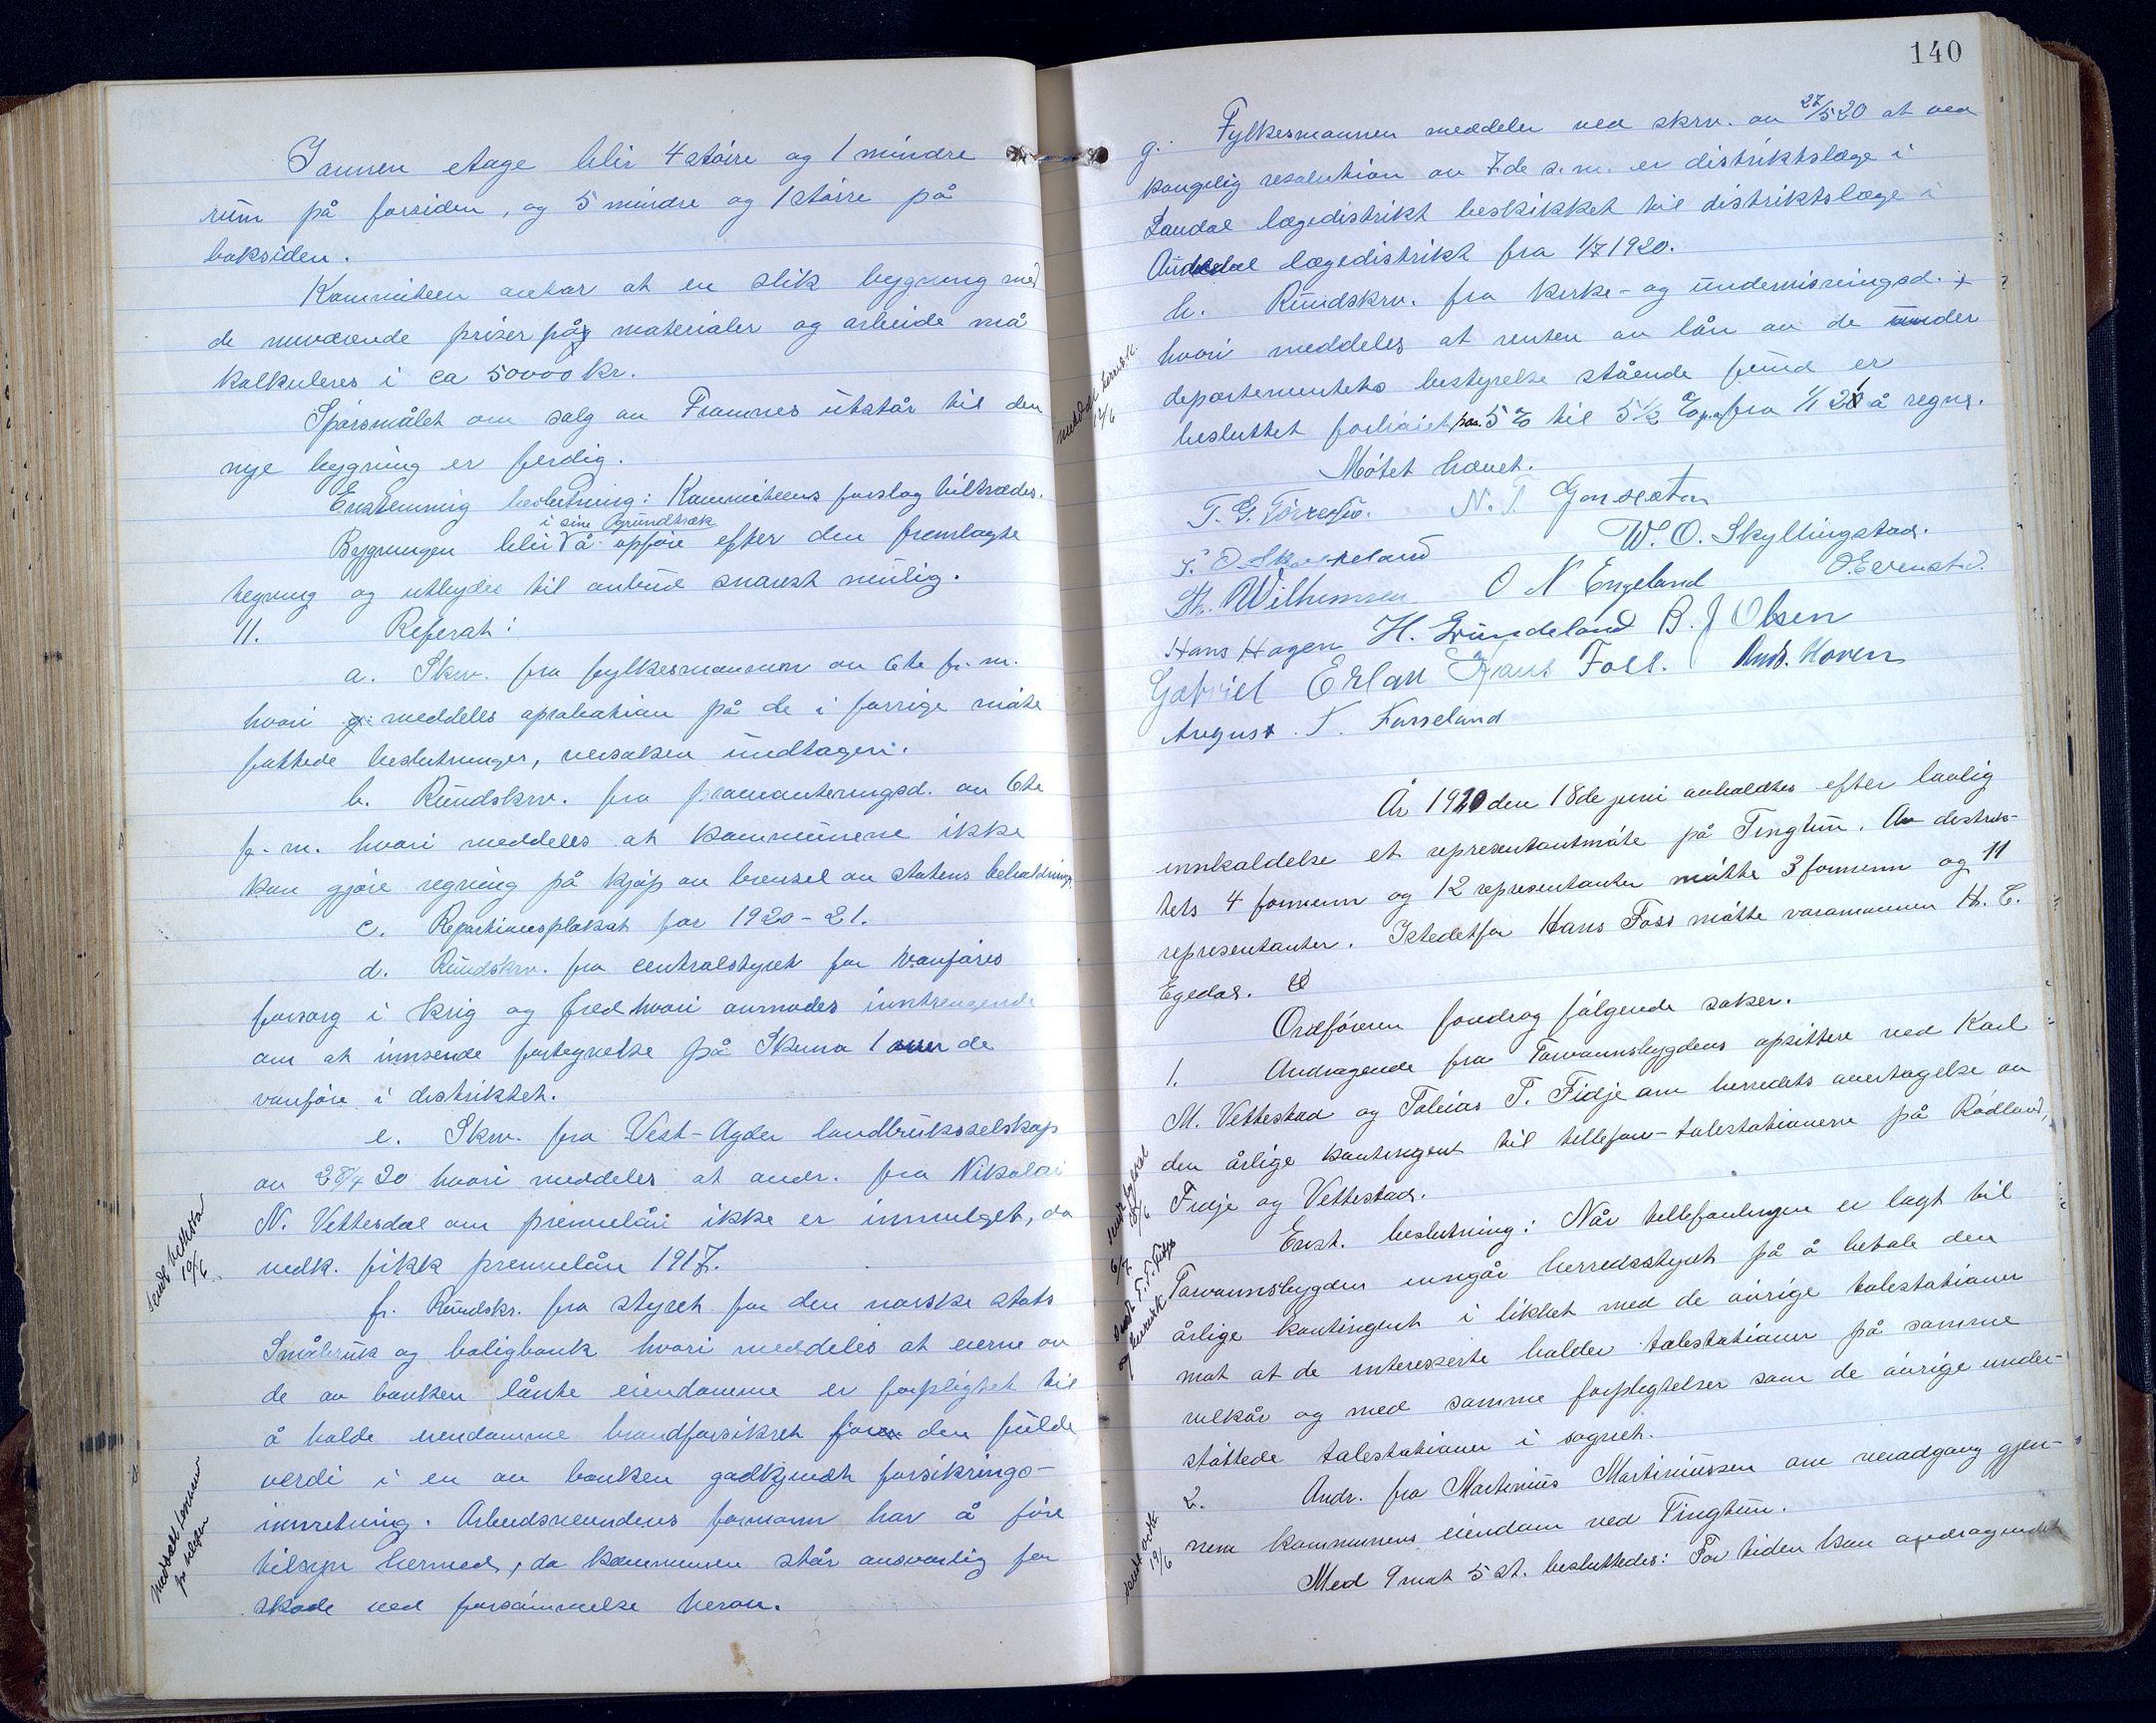 I annen etage blir 4 støire og 1 mindre
rum på forsiden, og 5 mindre og 1 større på
baksiden.
Kommiteen antar at en slik bygning med
de nuværende priser på materialer og arbeide må
kalkuleres i ca 50000 kr.
Spørsmålet om salg av Framnes utstår til den
nye bygning er ferdig.
Enstemmig beslutning: Kommiteens forslag tiltrædes.
i sine grundtræk
Bygningen blir å opføre efter den fremlagte
tegning og utbydes til anbud snarest mulig.
11. Referat:
a. Skrv. fra fylkesmannen av 6te f. m.
hvori meddeles aprobation på de i forrige møte
fattede beslutninger, veisaken undtagen.
b. Rundskrv. fra provianteringsd. av 6te
f. m. hvori meddeles at kommunene ikke
kan gjøre regning på kjøp av brensel av statens beholdning.
c. Repartionsplakat for 1920-21.
d. Rundskrv. fra centralstyret for vanføres
forsorg i krig og fred hvori anmodes inntrengende
om at innsende fortegnelse på Skema 1 over de
vanføre i distriktet.
e. Skrv. fra Vest-Agder landbruksselskap
av 28/4 20 hvori meddeles at andr. fra Nikolai
N. Vettesdal om premielån ikke er innvilget, da
vedk. fikk premielån 1917.
f. Rundskr. fra styret for den norske stats
Småbruk og boligbank hvori meddeles at eierne av
de av banken lånte eiendomme er forpligtet til
å holde eiendomme brandforsikret for den fulde
verdi i en av banken godkjendt forsikrings-
innretning. Arbeidsnevndens formann har å føre
tilsyn hermed, da kommunen står ansvarlig for
skade ved forsømmelse herav.
19/6
Meddelt formann
pr telefon
140
g. Fylkesmannen meddeler ved skrv. av 27/5 20 at ved
kongelig resolution av 7de s.m. er distriktslæge i
Laudal lægedistrikt beskikket til distriktslæge i
Audnedal lægedistrikt fra 1/7 1920.
h. Rundskrv. fra Kirke- og undervisningsd.
hvori meddeles at renten av lån av de under
departementets bestyrelse stående fund er
besluttet forhøiet fra 5 % til 5½ % p.a. fra 1/1 21 å regne.
Møtet hævet.
T. G. Tørresen. N. T. Gonsexton
W. O. Skyllingstad.
T. O. Skoereland
Th. Wilhemsen O N Engeland O. Evenstad.
Hans Hagen H. Grundeland B. J Olsen
Gabriel Erlan Hans Foss. Ands. Hoven
August T. Fasseland
12/6
År 1920 den 18de juni avholdtes efter lovlig
innkaldelse et representantmøte på Tingtun. Av distrik-
tets 4 formenn og 12 representanter møtte 3 formenn og 11
representanter. Istedetfor Hans Foss møtte varamannen H. T.
Egedal.
Ordføreren foredrog følgende saker.
1. Andragende fra Tarvannsbygdens opsittere ved Karl
M. Vettestad og Tobias T. Fidje om herredets overtagelse av
den årlige kontingent til tellefon-talestationerne på Rødland,
Fidje og Vettestad.
Enst. beslutning: Når tellefonlinjen er lagt til
Tarvannsbygden inngår herredsstyret på å betale den
årlige kontingent i likhet med de øvrige talestationer
mot at de interesserte holder talestationer på samme
vilkår og med samme forpligtelser som de øvrige under-
støttede talestationer i sognet.
2. Andr. fra Martinius Martiniussen om veiadgang gjen-
nem kommunens eiendom ved Tingtun.
Med 9 mot 5 st. besluttedes: For tiden kan andragendet
6/7 Sendt T. T. Fidje
19/6